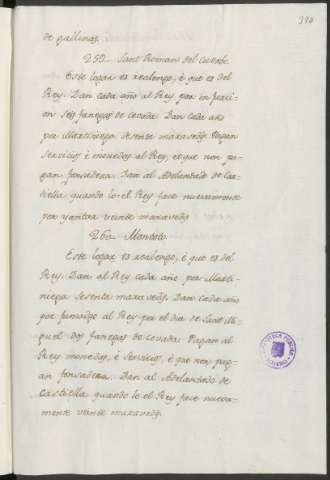 374
de gallinas.
259. Sant Roman del Castle
Este logar es realengo, è que es del
Rey. Dan cada año al Rey por infurci-
on seis fanegas de cevada. Dan cada año
por Martiniega sesenta maravedis. Pagan
servicios è monedas al Rey, et que non pa-
gan fonsadera. Dan al Adelantado de Cas-
tiella quando lo el Rey face nuevamente
por yantar veinte maravedis.
260. Montoto.
Este logar es realengo, è que es del
Rey. Dan al Rey cada año por Marti-
niega sesenta maravedis. Dan cada año
por fumadgo al Rey por el dia de Sant Mi-
guel dos fanegas de cevada. Pagan al
Rey monedas, è servicios, è que non pag-
an fonsadera. Dan al Adelantado de
Castiella quando lo el Rey face nueva-
mente veinte maravedis.
BIBLIOTECA PUBLICA